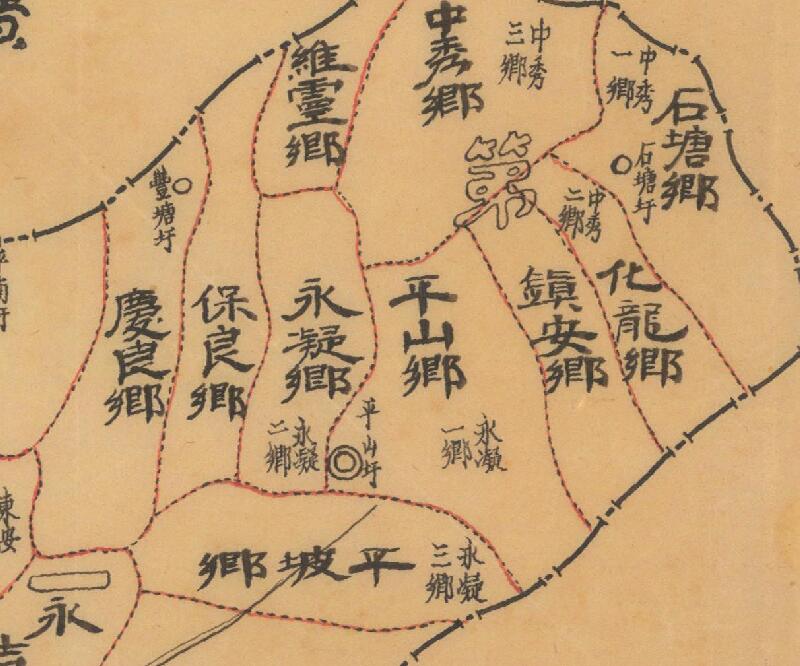 中秀鄉
中秀
三鄉
中秀
一鄉
維靈鄉
石塘鄉
石塘圩
豐塘圩
中秀
二鄉
第
化龍鄉
鎮安鄉
平山鄉
永凝鄉
保良鄉
慶良鄉
平山圩
永凝
一鄉
永凝
二鄉
平坡鄉
永凝
三鄉
東安
永